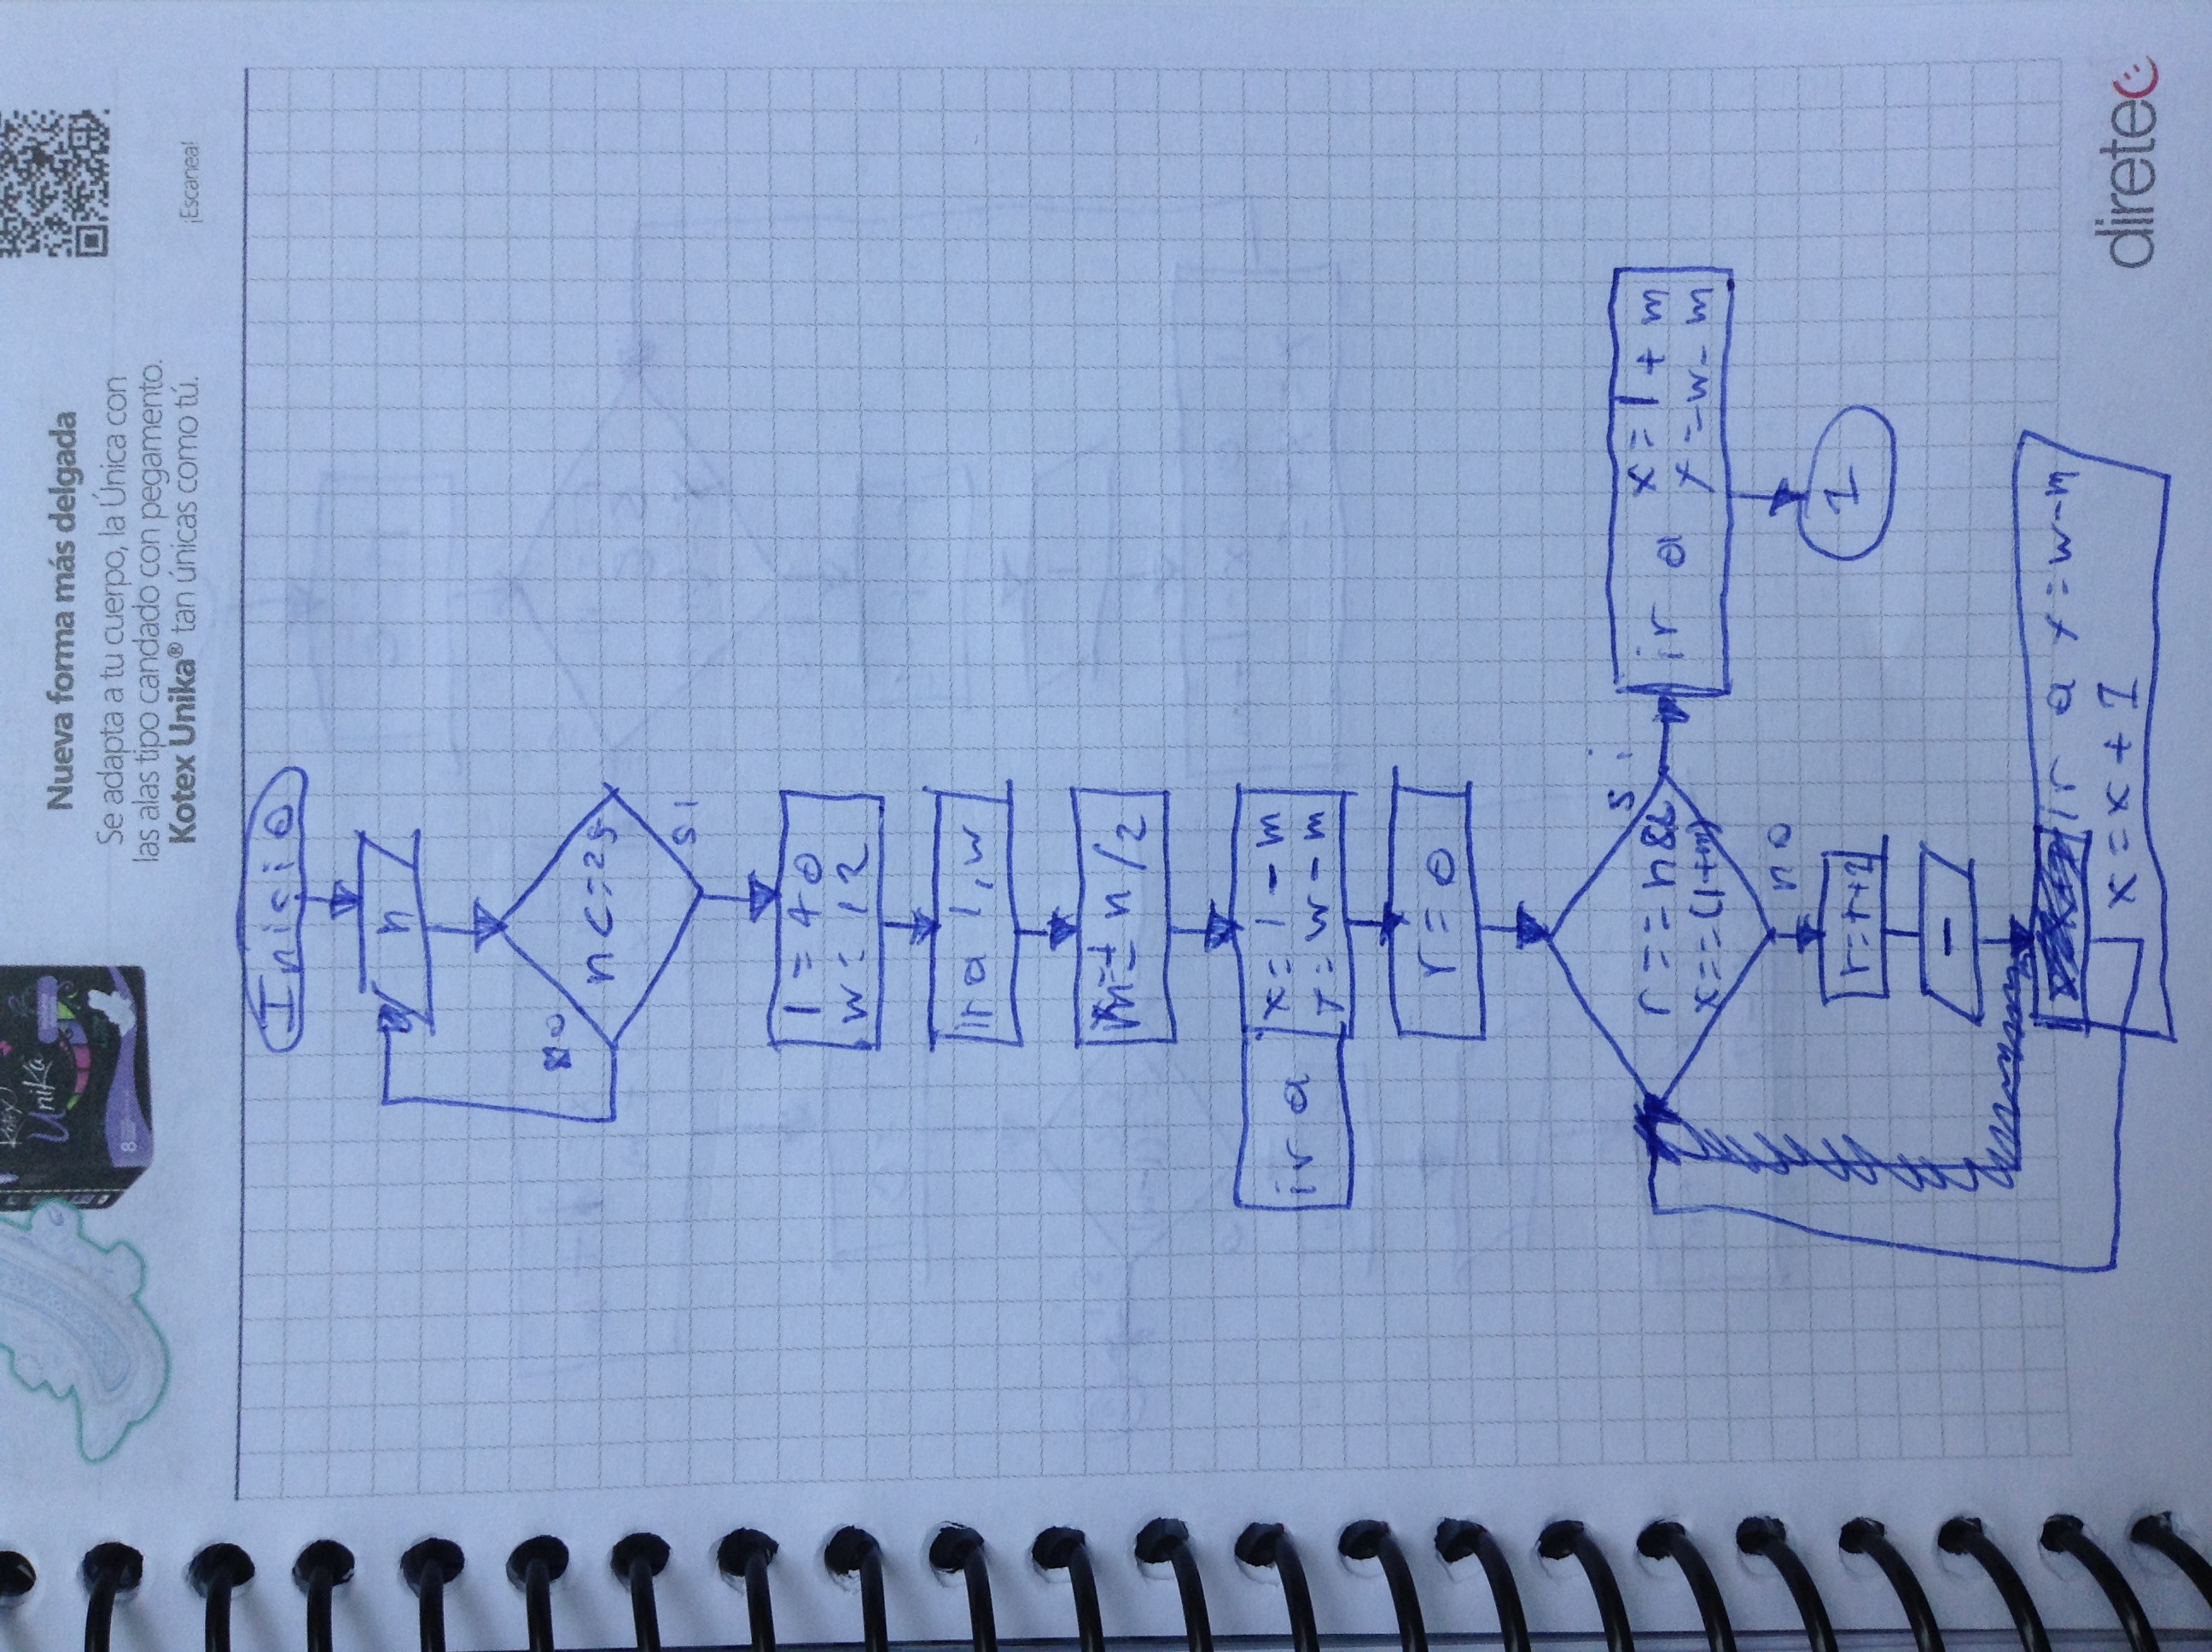 Kotex
Unika
8
Nueva forma más delgada
Se adapta a tu cuerpo, la Única con
las alas tipo candado con pegamento.
Kotex Unika® tan únicas como tú.
¡Escanea!
Inicio
n
no
n <= 25
si
l = 40
w = 12
ir a l, w
n/2
ir a
x = l - m
y = w - m
r = 0
si
r == n &&
x == (l+m)
ir a x = l + m
y = w - m
no
1
r = r+1
-
ir a y = w-m
x = x + 1
diretec